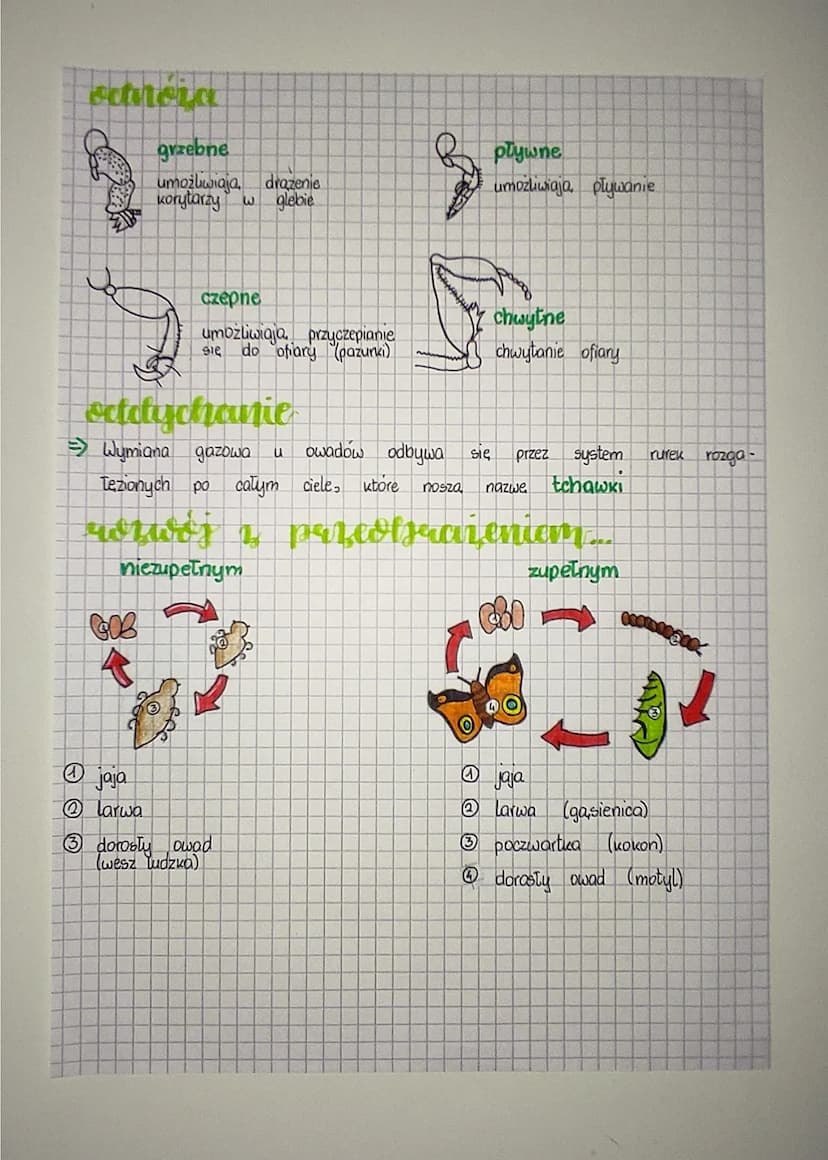 odnóża
grzebne
umożliwiają drążenie
korytarzy w glebie
pływne
umożliwiają pływanie
czepne
umożliwiają przyczepianie
się do ofiary (pazurki)
chwytne
chwytanie ofiary
oddychanie
⇒ Wymiana gazowa u owadów odbywa się przez system rurek rozga-
łęzionych po całym ciele, które noszą nazwę tchawki
rozwój z przeobrażeniem...
niezupełnym
① 
②
③
① jaja
② larwa
③ dorosły owad
(wesz ludzka)
zupełnym
①
②
③
④
① jaja
② larwa (gąsienica)
③ poczwarka (kokon)
④ dorosły owad (motyl)